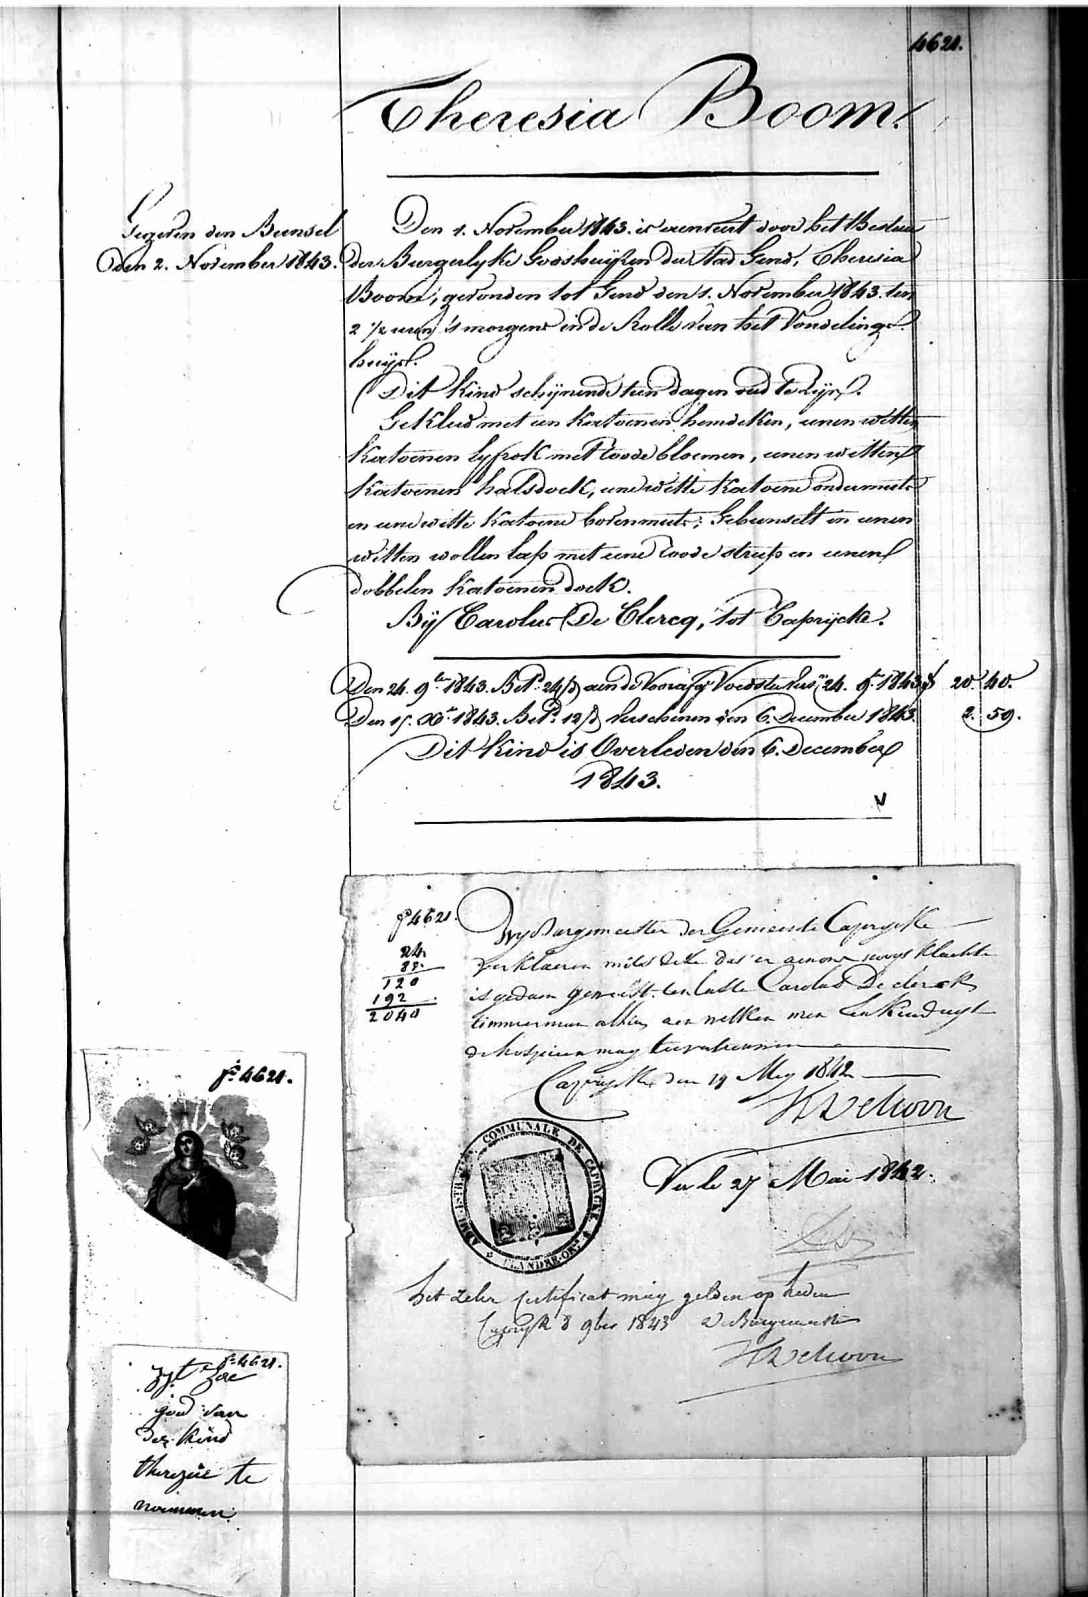 4621.
Theresia Boom.
Gegeven den Bunsel
den 2. November 1843.
Den 1. November 1843. is aenveert door het Bestuer
der Burgerlyke Godshuijzen der Stad Gend, Theresia
Boom, gevonden tot Gend den 1. November 1843. ten
2 ½ uren 's morgens in de Rolle van het Vondelings-
huijs.
Dit kind schijnende tien dagen oud te zijn.
Gekleed met een katoenen hemdeken, eenen witten
katoenen lyfrok met roode bloemen, eenen witten
katoenen halsdoek, eene witte katoene ondermuts
en eene witte katoene bovenmuts; Gebunselt in eenen
witten wollen lap met eene roode streep en eenen
dobbelen katoenen doek.
Bij Carolus De Clercq, tot Caprijcke.
Den 24. 9.bre 1843. Bet. 24 aen de Voorzg. Voedster 24. 9. 1843 20. 40.
Den 15. Xbr. 1843. Bet. 12 verschenen den 6. December 1843. 2. 59.
Dit kind is Overleden den 6. December
1843.
V
f° 4621.
24
85
120
192
2040
Wy Borgmeester der Gemeente Caprycke
verklaeren mits deze dat er aenons noogt klachte
is gedaen geweest ten laste Carolus De clerck
timmerman alhier aen welken men een kind uyt
de hospicen mag toevertrouwen
Capryck den 19 Mey 1842
ADMINISTRATION COMMUNALE DE CAPRYCKE FLANDRE-ORLE
Vu le 27 Mai 1842.
het zelve certificat mag gelden op heden
Capryk 8 9bre 1843 De Borgmeester
f° 4621.
f° 4621.
zyt zoe
goed van
dez kind
therezie te
noemmen.